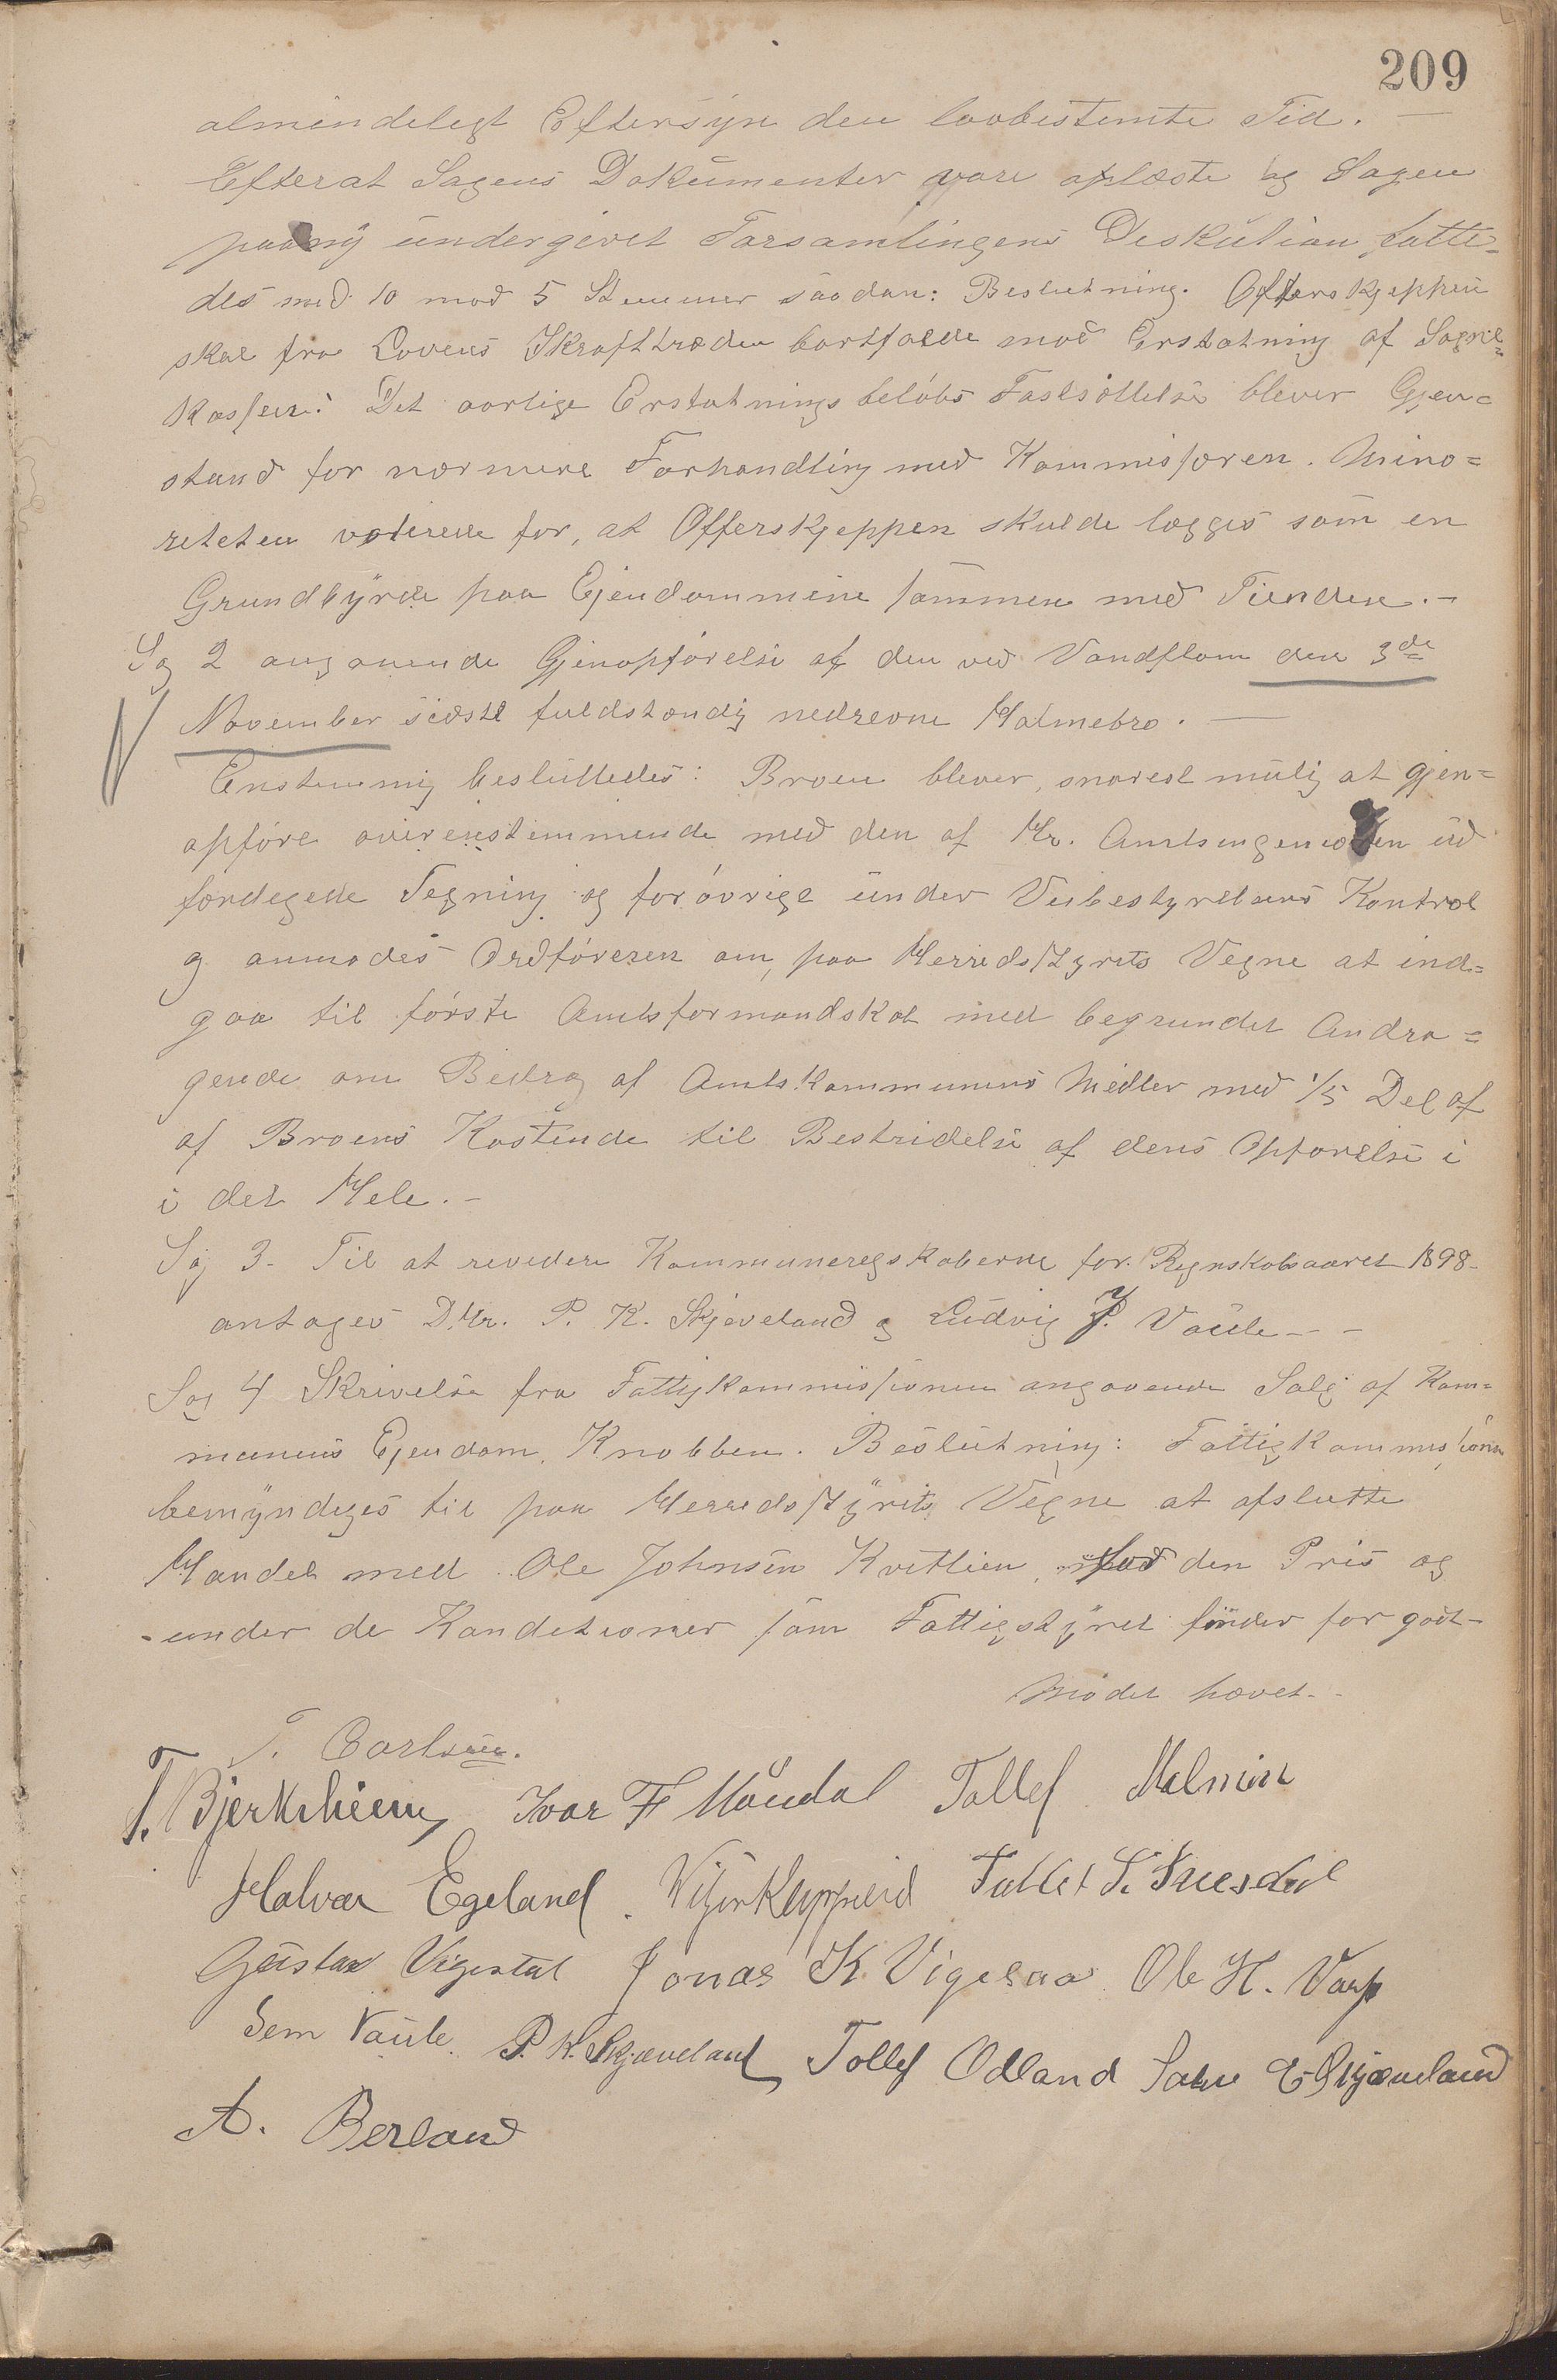 209
almindelegt Eftersyn den lovbestemte Tid. —
Efterat Sagens Dokumenter vare oplæste og Sagen
paany undergivet Forsamlingens Diskution fatte=
des med 10 mod 5 Stemmer saadan: Beslutning. Offerskjeppen
skal fra Lovens Ikrafttræden bortfalde mod Erstatning af Sogne=
kassen. Det aarlige Erstatningsbeløbs Fastsættelse bliver Gjen=
stand for nærmere Forhandling med Kommissæren. Mino=
riteten voterede for, at Offerskjeppen skulde lægges som en
Grundbyrde paa Ejendommene sammen med Tienden. -
Sag 2 angaaende Gjenopførelse af den ved Vandflom den 3de
November sidstl fuldstændig nedrevne Malmebro. —
Enstemmig besluttedes: Broen bliver, snarest mulig at gjen=
opføre overensstemmende med den af Hr. Amtsingeniøren ud
færdegede Tegning og forøvrigt under Veibestyrelsens Kontrol
g anmodes Ordføreren om, paa Herredsstyrets Vegne at ind=
gaa til første Amtsformandskab med begrundet Andra=
gende om Bidrag af Amtskommunens Midler med 1/5 Del af
af Broens Kostende til Bestridelse af dens Opførelse i
i det Hele. -
Sag 3. Til at revidere Kommuneregskaberne for Regnskabsaaret 1898-
antages D.Hr. P. K. Skjæveland og Ludvig J. Vaule - -
Sag 4 Skrivelse fra Fattigkommissionen angaaende Salg af Kom=
munens Ejendom, Knobben. Beslutning: Fattigkommissionen
bemyndiges til paa Herredsstyrets Vegne at afslutte
Handel med Ole Johnsen Kvitlien, for den Pris og
under de Konditioner som Fattigstyret finder for godt -
Mødet hævet. -
T. Carlsen.
T. Bjerkrheim, Ivar F Maudal Tollef Malmin
Halvor Egeland. Tollef S.
Gustav Vigestal Jonas K. Vigesaa Ole H. Varp
Sem Vaule. P. K. Skjæveland Tollef Odland E Skjæveland
A. Berland